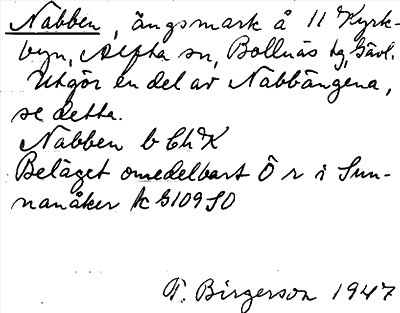 Nabben, ängsmark å 11 Kyrk-
byn, Alfta sn, Bollnäs tg, Gävl.
Utgör en del av Nabbängena,
se detta.
Nabben b Ch K
Beläget omedelbart Ö r i Sun-
nanåker k G109 SO
T. Birgerson 1947